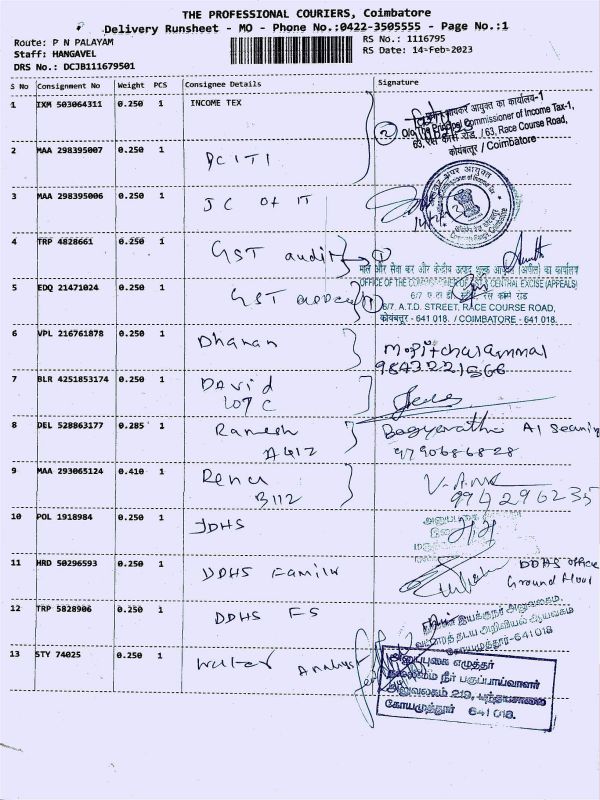 THE PROFESSIONAL COURIERS, Coimbatore
Delivery Runsheet - MO - Phone No.:0422-3505555 - Page No.:1
Route: P N PALAYAM
Staff: HANGAVEL
DRS No.: DCJB111679501
RS No.: 1116795
RS Date: 14-Feb-2023
S No Consignment No Weight PCS Consignee Details Signature
1 IXM 503064311 0.250 1 INCOME TEX
आयकर आयुक्त का कार्यालय-1
Commissioner of Income Tax-1,
63, Race Course Road,
कोयंबतूर / Coimbatore
2 MAA 298395007 0.250 1 DC ITI
3 MAA 298395006 0.250 1 JC of IT
4 TRP 4828661 0.250 1 GST audit
माल और सेवा कर और केंद्रीय उत्पाद शुल्क आयुक्त (अपील) का कार्यालय
5 EDQ 21471024 0.250 1 GST
OFFICE OF THE CENTRAL EXCISE (APPEALS)
6/7 ए.टी.डी. रेस कोर्स रोड
6/7, A.T.D. STREET, RACE COURSE ROAD,
कोयंबतूर - 641 018. / COIMBATORE - 641 018.
6 VPL 216761878 0.250 1 Dhanan
9843221566
7 BLR 4251853174 0.250 1 David
107 C
8 DEL 528863177 0.285 1 Ramesh
A412
9790686828
9 MAA 293065124 0.410 1 Renu
B112
994296235
10 POL 1918984 0.250 1 JDHS
11 HRD 50296593 0.250 1 DDHS Family
DDHS office
Ground floor
12 TRP 5828906 0.250 1 DDHS FS
கோயமுத்தூர்-641018
13 STY 74025 0.250 1 Water Analyst
அனுப்புகை எழுத்தர்
நீர் பகுப்பாய்வாளர்
அலுவலகம் 219, பந்தயசாலை
கோயமுத்தூர் 641 018.